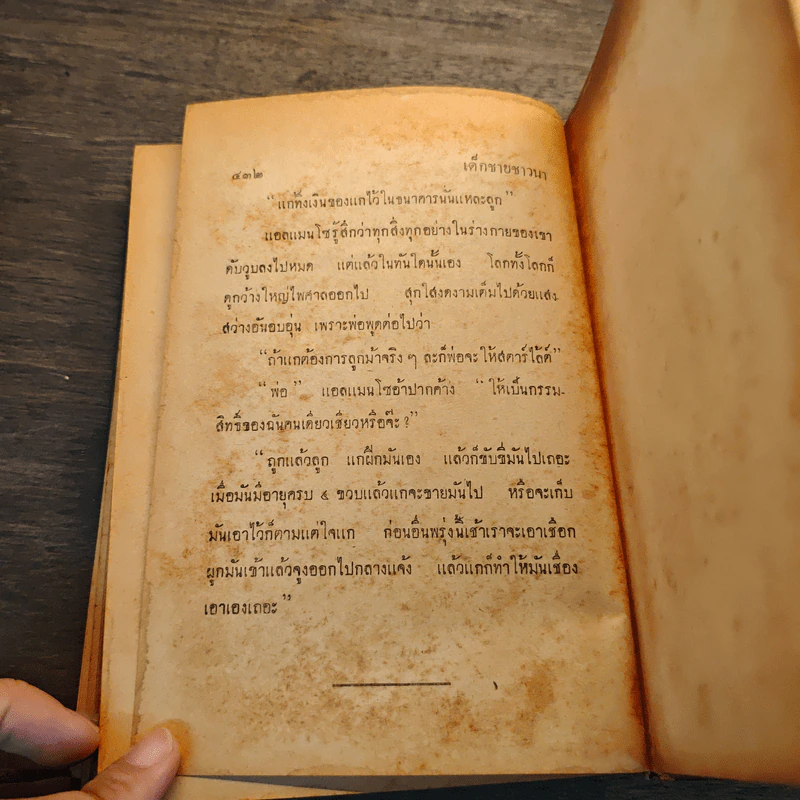 ๔๓๒ เด็กชายชาวนา
“แกทิ้งเงินของแกไว้ในธนาคารนั่นแหละลูก”
แอลแมนโซรู้สึกว่าทุกสิ่งทุกอย่างในร่างกายของเขา
ดับวูบลงไปหมด แต่แล้วในทันใดนั้นเอง โลกทั้งโลกก็
ดูกว้างใหญ่ไพศาลออกไป สุกใสงดงามเต็มไปด้วยแสง
สว่างอันอบอุ่น เพราะพ่อพูดต่อไปว่า
“ถ้าแกต้องการลูกม้าจริง ๆ ละก็พ่อจะให้สตาร์ไล้ต์”
“พ่อ” แอลแมนโซอ้าปากค้าง “ให้เป็นกรรม-
สิทธิ์ของฉันคนเดียวเชียวหรือจ๊ะ?”
“ถูกแล้วลูก แกฝึกมันเอง แล้วก็ขับขี่มันไปเถอะ
เมื่อมันมีอายุครบ ๔ ขวบแล้วแกจะขายมันไป หรือจะเก็บ
มันเอาไว้ก็ตามแต่ใจแก ก่อนอื่นพรุ่งนี้เช้าเราจะเอาเชือก
ผูกมันเข้าแล้วจูงออกไปกลางแจ้ง แล้วแกก็ทำให้มันเชื่อง
เอาเองเถอะ”